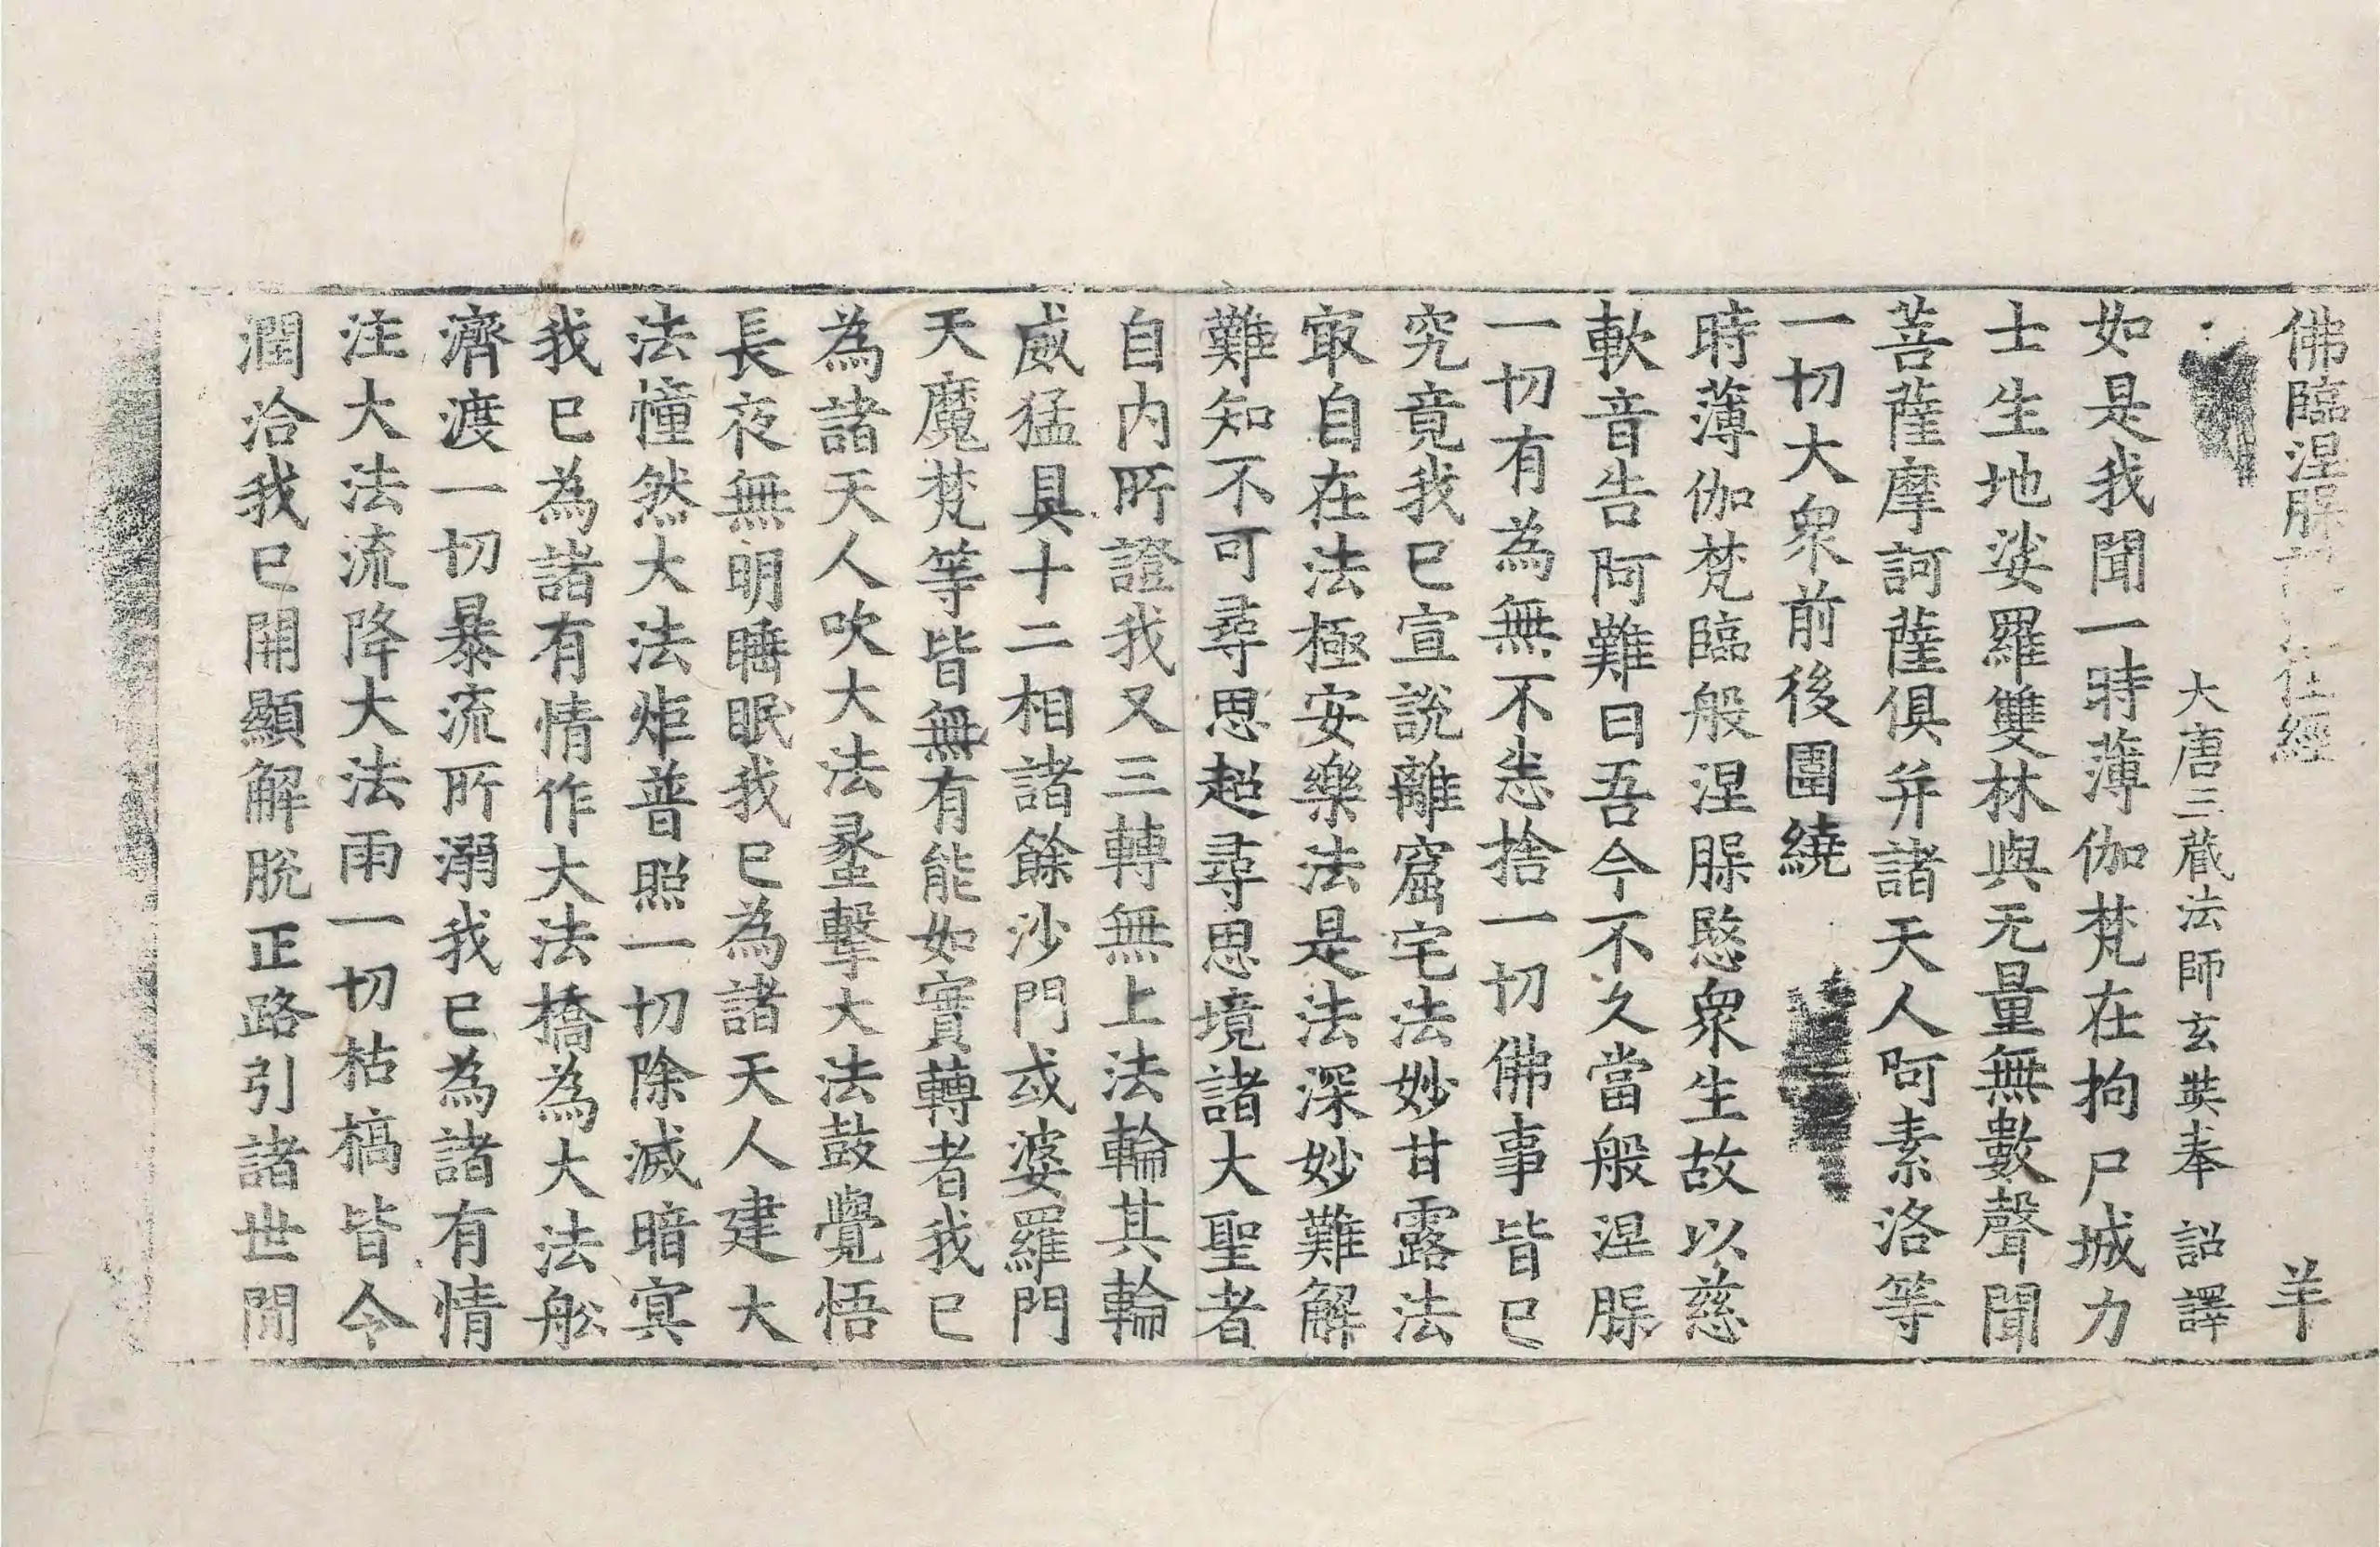 佛臨涅槃記法住經 羊
大唐三藏法師玄奘奉 詔譯
如是我聞一時薄伽梵在拘尸城力
士生地娑羅雙林與无量無數聲聞
菩薩摩訶薩俱并諸天人阿素洛等
一切大衆前後圍繞
時薄伽梵臨般涅槃愍衆生故以慈
軟音告阿難曰吾今不久當般涅槃
一切有為無不悉捨一切佛事皆已
究竟我已宣說離窟宅法妙甘露法
㝡自在法極安樂法是法深妙難解
難知不可尋思超尋思境諸大聖者
自内所證我又三轉無上法輪其輪
威猛具十二相諸餘沙門或婆羅門
天魔梵等皆無有能如實轉者我已
為諸天人吹大法䗍擊大法鼓覺悟
長夜無明睡眠我已為諸天人建大
法憧然大法炬普照一切除滅暗㝠
我已為諸有情作大法橋為大法舩
濟渡一切暴流所溺我已為諸有情
注大法流降大法雨一切枯槁皆令
潤洽我已開顯解脫正路引諸世間